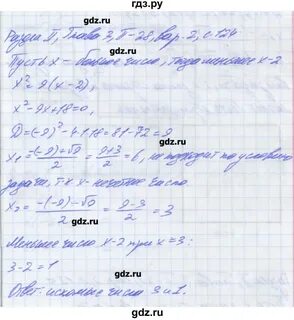 гдз.ру
Раздел II, Глава 3, П-28, вар. 2, с. 124
Пусть x – большее число, тогда меньшее x-2
x² = 9(x-2),
x² - 9x + 18 = 0,
D = (-9)² - 4·1·18 = 81 - 72 = 9
x₁ = (-(-9)+√9)/2 = (9+3)/2 = 6, не подходит по условию
задачи, т.к x - нечетное число.
x₂ = (-(-9)-√9)/2 = (9-3)/2 = 3
Меньшее число x-2 при x = 3:
3-2=1
Ответ: искомые числа 3 и 1.
гдз.ру